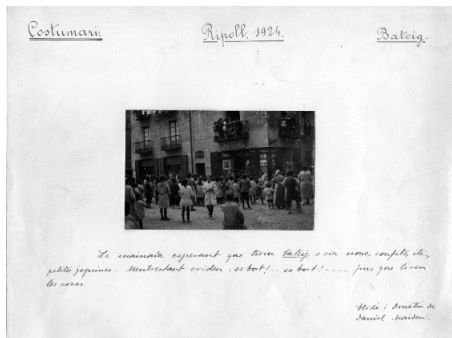 Costumari. Ripoll. 1924. Bateig.
La mainada esperant que tirin bateig o sia nous, confits, etc,
petites joguines. Mentrestant criden: es bort!... es bort!.... fins que tiren
les coses.
Clixé i Donatiu de
Daniel